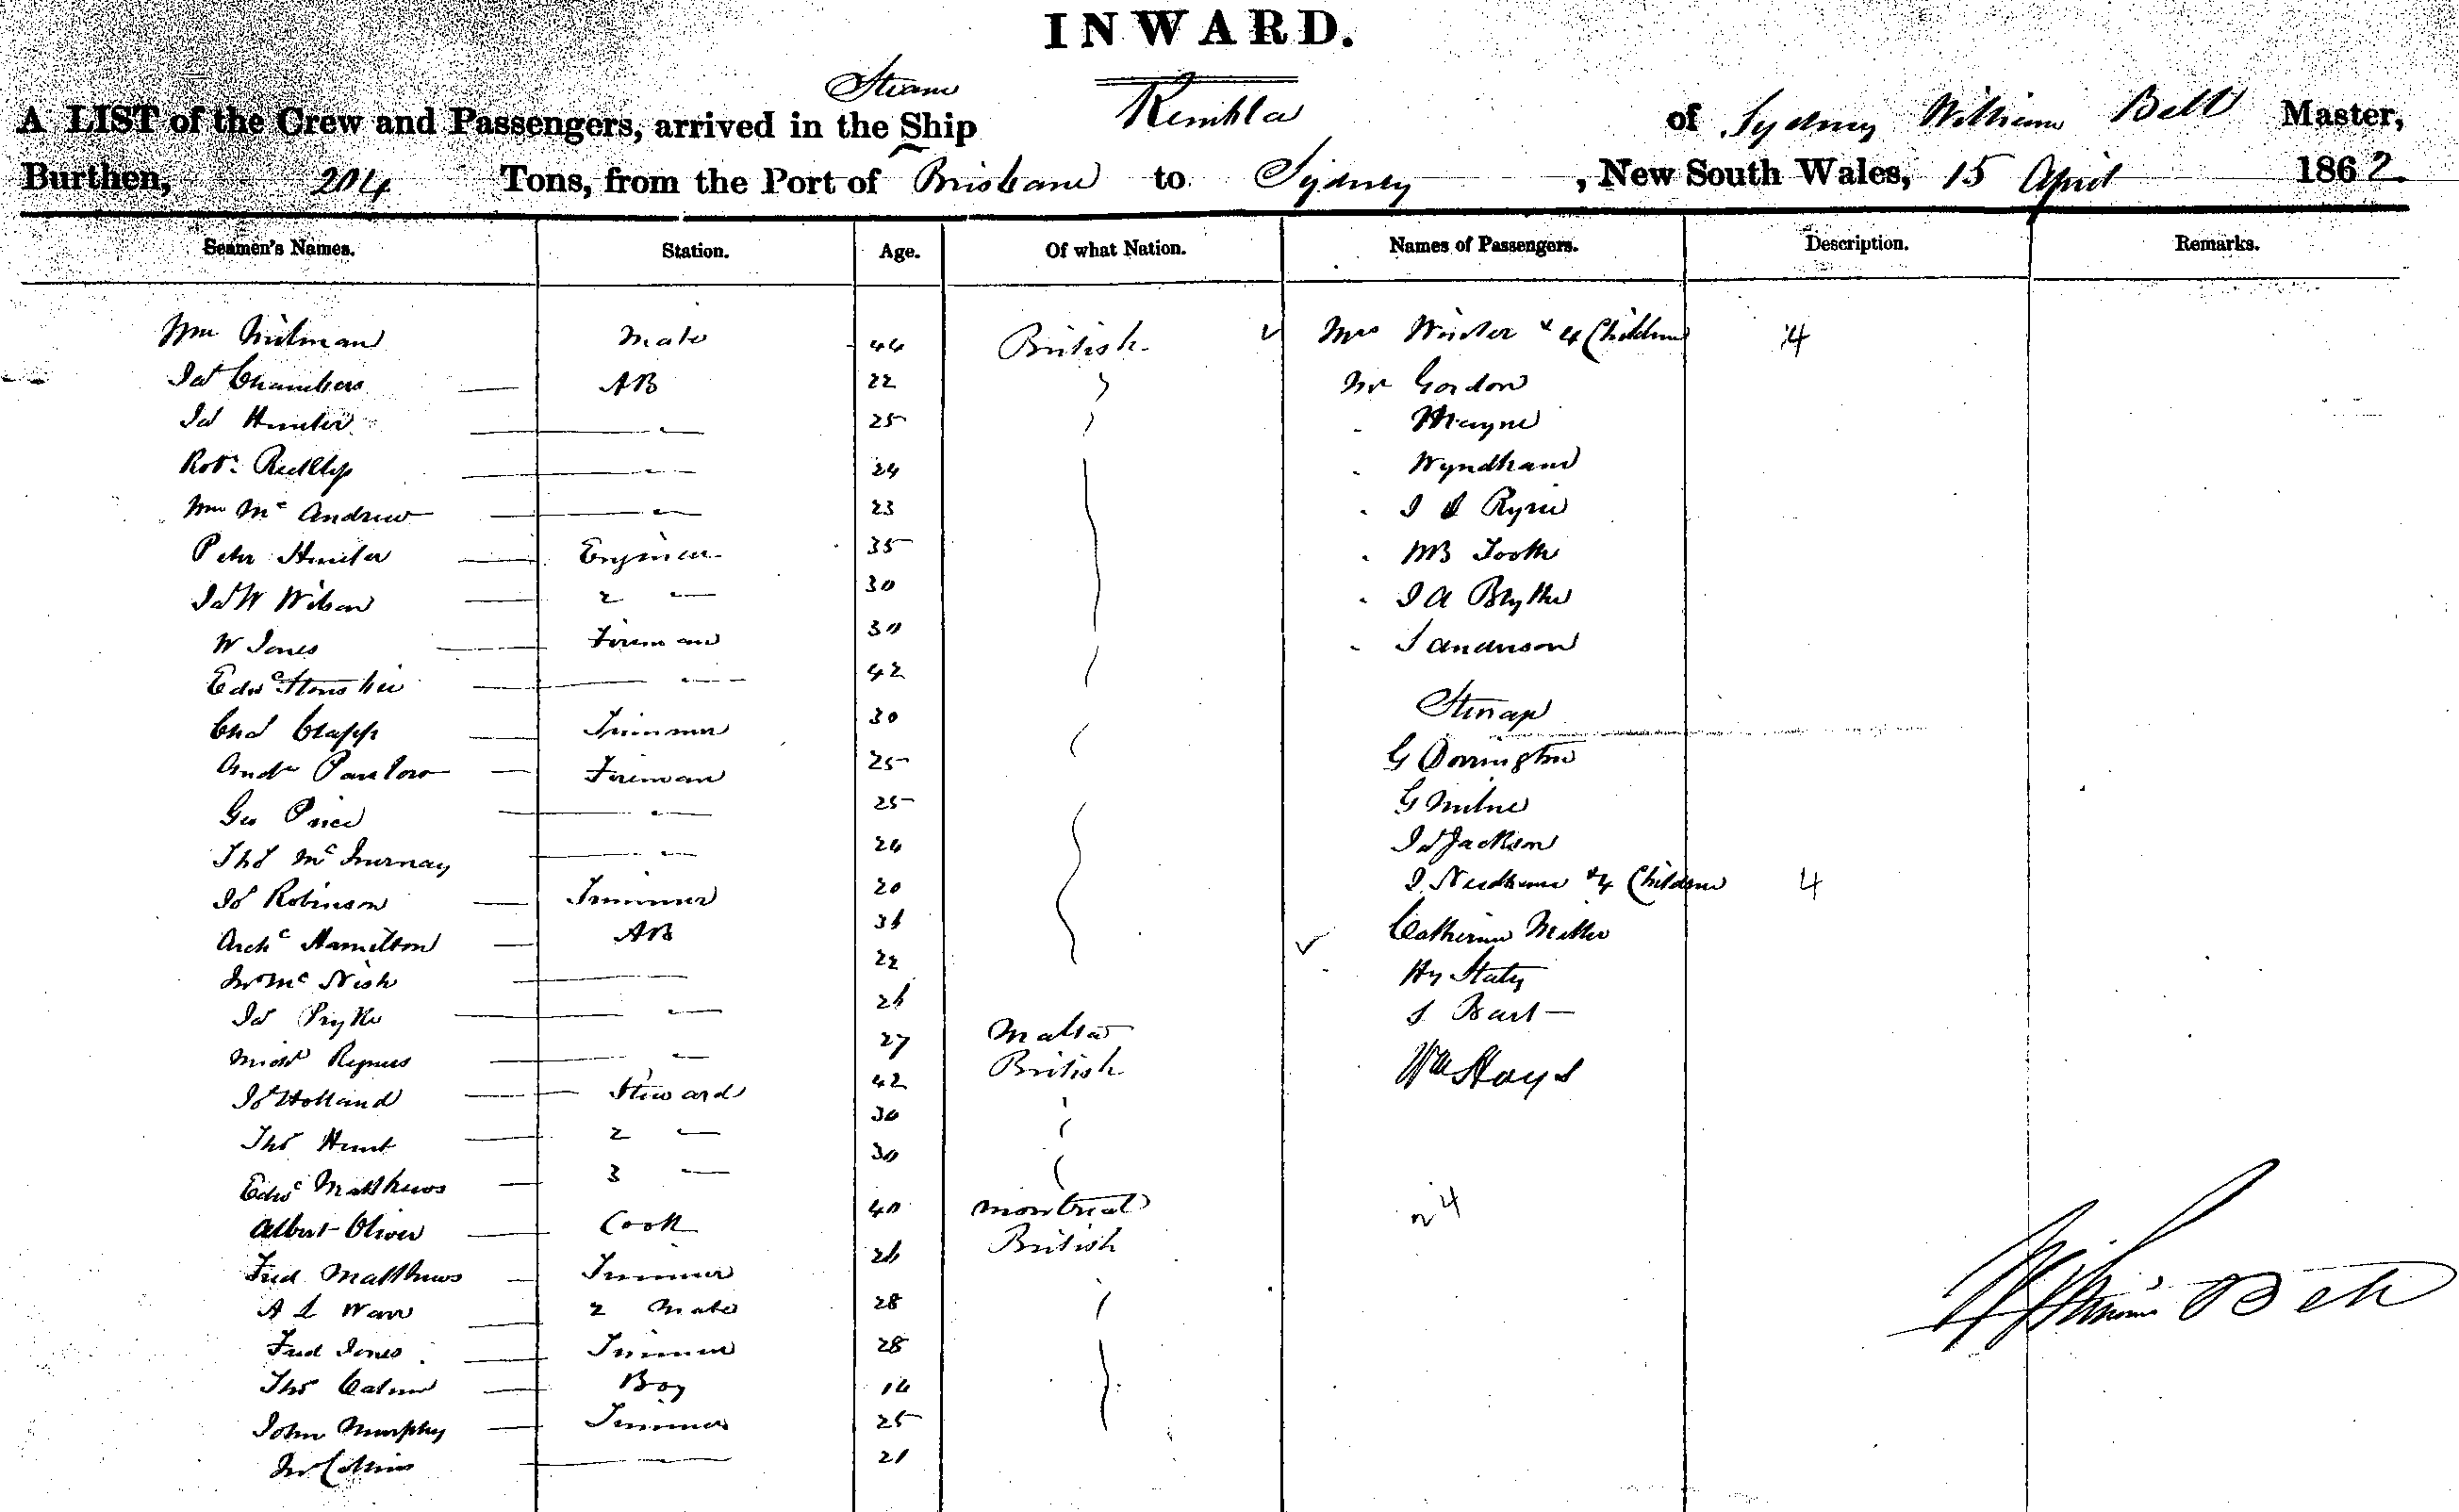 INWARD.
Steam
A LIST of the Crew and Passengers, arrived in the Ship Kembla of Sydney William Bell Master,
Burthen, 204 Tons, from the Port of Brisbane to Sydney, New South Wales, 15 April 1862.
Seamen's Names. Station. Age. Of what Nation. Names of Passengers. Description. Remarks.
Wm Mate 44 British Mrs Winter & 4 Children 4
Jas Chambers AB 22 Mr Gordon
Jas Hunter 25 Mayne
Robt 24 Wyndham
Wm Mc Andrew 23 Ryrie
Peter Hunter Engineer 35 Tooth
Jas W Wilson 2 30 J A Blythe
W Jones Fireman 30 Sanderson
Edwd 42
Chas Clapp Trimmer 30 G Dorrington
Andw Fireman 25 G Milne
Geo Price 25 Jas Jackson
Thos Mc 24 J Needham & 4 Children 4
Jas Robinson Trimmer 20 Catherine Miller
Archd Hamilton AB 36 Hy
Jno Mc Nish 22 S
Jas 26 Wm Hays
27 Malta
Jas Holland Steward 42 British
Thos Hunt 2 30
Edwd Matthews 3 30
Albert Oliver Cook 40 Montreal 24
Fred Matthews Trimmer 26 British
A L Warr 2 Mate 28
Fred Jones Trimmer 28
Thos Boy 14
John Murphy Trimmer 25
Jno Collins 21
William Bell